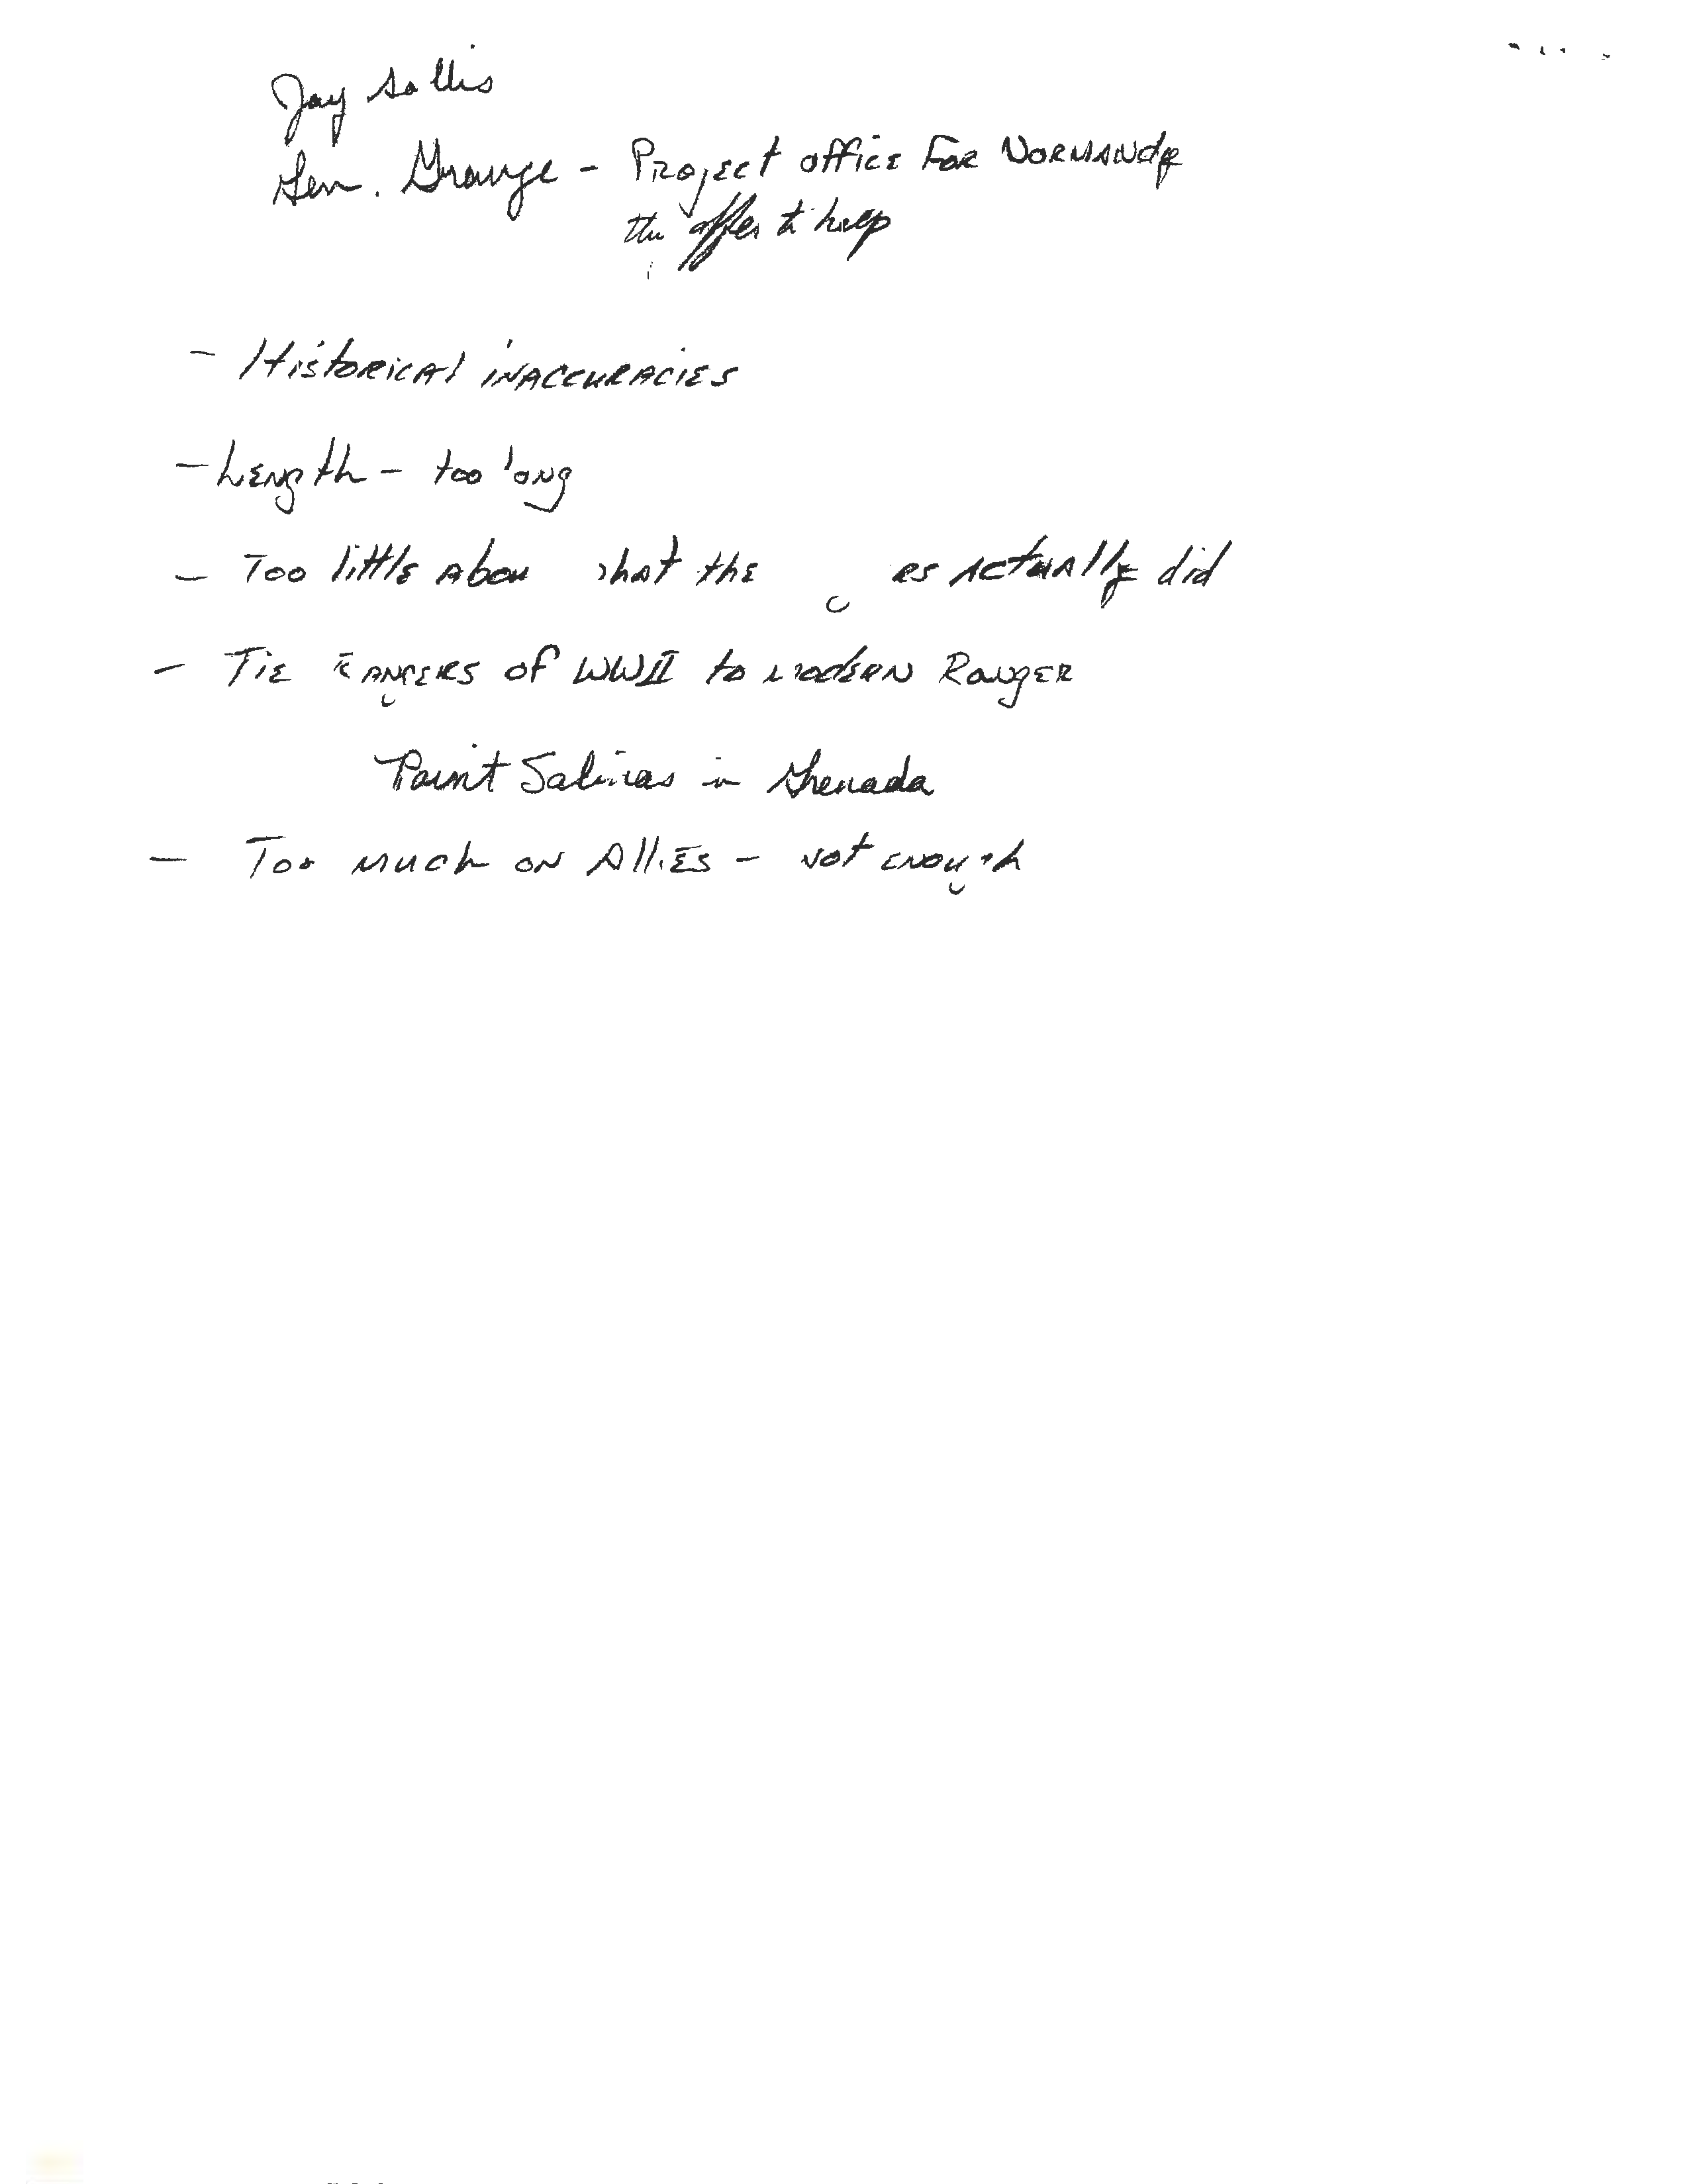 Jay Sallis
Gen. Grange - Project office For Normandy
the offer to help
- Historical inaccuracies
- Length - too long
- Too little about what the actually did
- Tie Rangers of WWII to modern Ranger
Point Salinas in Grenada
- Too much on Allies - not enough